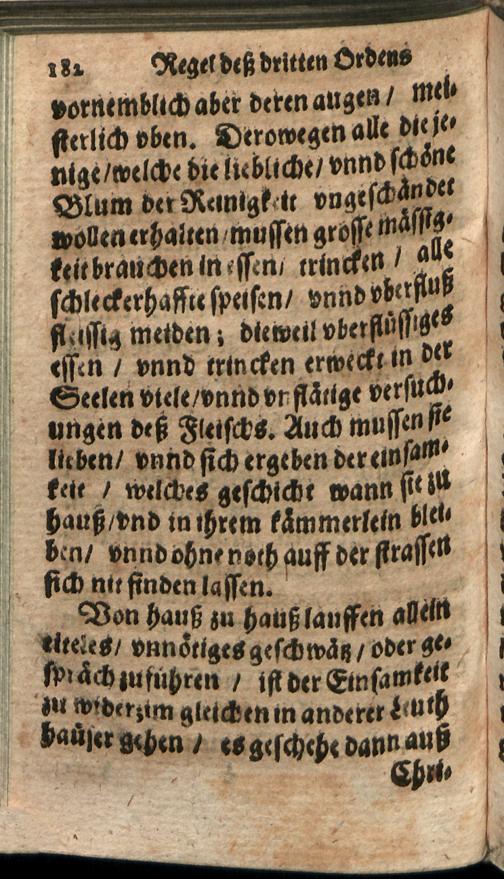 182 Regel deß dritten Ordens
vornemblich aber deren augen / mei⸗
sterlich vben. Derowegen alle die je⸗
nige / welche die liebliche / vnnd schöne
Blum der Reinigkeit vngeschändet
wollen erhalten / mussen grosse mässig⸗
keit brauchen in essen / trincken / alle
schleckerhaffte speisen / vnnd vberfluß
fleissig meiden ; dieweil vberflüssiges
essen / vnnd trincken erweckt in der
Seelen viele / vnnd vnflätige versuch⸗
ungen deß Fleischs. Auch mussen sie
lieben / vnnd sich ergeben der einsam⸗
keit / welches geschicht wann sie zu
hauß / vnd in ihrem kämmerlein blei⸗
ben / vnnd ohne noth auff der strassen
sich nit finden lassen.
Von hauß zu hauß lauffen allein
eiteles / vnnötiges geschwätz / oder ge⸗
spräch zuführen / ist der Einsamkeit
zu wider; im gleichen in anderer Leuth
haüser gehen / es geschehe dann auß
Chri⸗